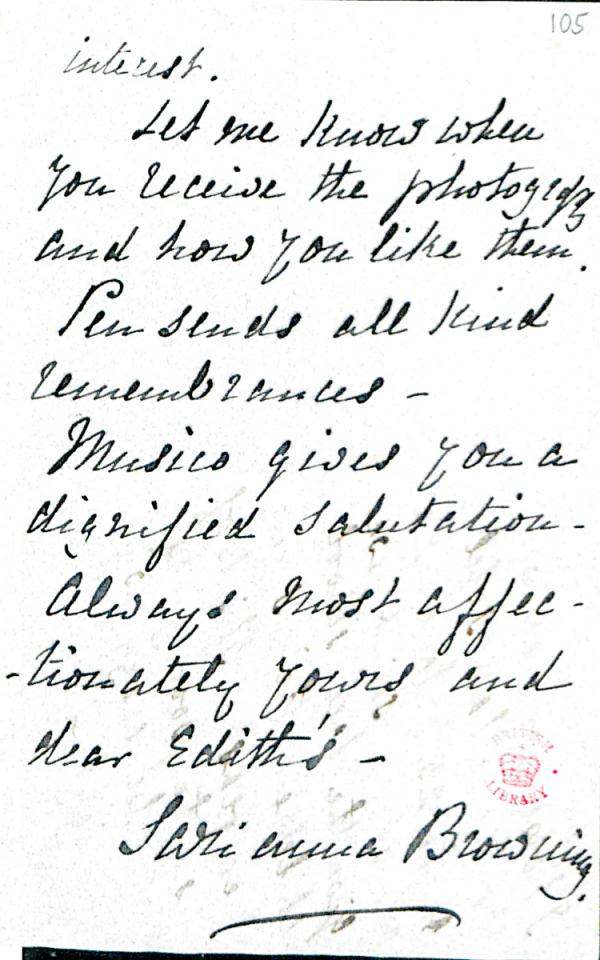 105
interest.
Let me know when
you receive the photographs
and how you like them.
Pen sends all kind
remembrances -
Musico gives you a
dignified salutation -
Always most affec-
-tionately yours and
dear Edith's -
Sarianna Browning.
BRITISH
LIBRARY